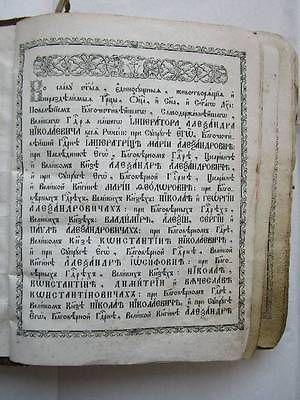 Во славу ст҃ыѧ, єдиносꙋщныѧ, животворѧщїѧ и
нераздѣлимыѧ Трⷪ҇цы, Ѻц҃а, и Сн҃а, и Ст҃агѡ Дх҃а:
Повелѣнїемъ Благочестивѣйшагѡ, Самодержавнѣйшагѡ
Великагѡ Гдⷭ҇рѧ нашегѡ ІМПЕРАТОРА АЛЕѮАНДРА
НІКОЛАЕВИЧА всеѧ Рѡссїи: при Сꙋпрꙋгѣ ЕГѠ, Благочестивѣйшей
Гдⷭ҇рынѣ ІМПЕРАТРИЦѢ МАРІИ АЛЕѮАНДРОВНѢ:
при Наслѣдникѣ ЕГѠ, Благовѣрномъ Гдⷭ҇рѣ, Цесаревичѣ
и Великомъ Кнѧзѣ АЛЕѮАНДРѢ АЛЕѮАНДРОВИЧѢ,
и Сꙋпрꙋгѣ ЕГѠ, Благовѣрной Гдⷭ҇рынѣ, Цесаревнѣ
и Великой Кнѧгинѣ МАРІИ ѲЕОДѠРОВНѢ: при Благовѣрныхъ
Гдⷭ҇рехъ, Великихъ Кнѧзехъ НІКОЛАѢ и ГЕѠРГІИ
АЛЕѮАНДРОВИЧАХЪ: при Благовѣрныхъ Гдⷭ҇рехъ,
Великихъ Кнѧзехъ ВЛАДИМІРѢ, АЛЕѮІИ, СЕРГІИ и
ПАѴЛѢ АЛЕѮАНДРОВИЧАХЪ: при Благовѣрномъ Гдⷭ҇рѣ,
Великомъ Кнѧзѣ КѠНСТАНТІНѢ НІКОЛАЕВИЧѢ,
и при Сꙋпрꙋгѣ ЕГѠ, Благовѣрной Гдⷭ҇рынѣ, Великой
Кнѧгинѣ АЛЕѮАНДРѢ ІѠСИФОВНѢ: при Благовѣрныхъ
Гдⷭ҇рехъ, Великихъ Кнѧзехъ: НІКОЛАѢ,
КѠНСТАНТІНѢ, ДИМИТРІИ и ВѦЧЕСЛАВѢ
КѠНСТАНТІНОВИЧАХЪ: при Благовѣрномъ Гдⷭ҇рѣ,
Великомъ Кнѧзѣ НІКОЛАѢ НІКОЛАЕВИЧѢ, и при Сꙋпрꙋгѣ
ЕГѠ, Благовѣрной Гдⷭ҇рынѣ, Великой Кнѧгинѣ АЛЕѮАНДРѢ